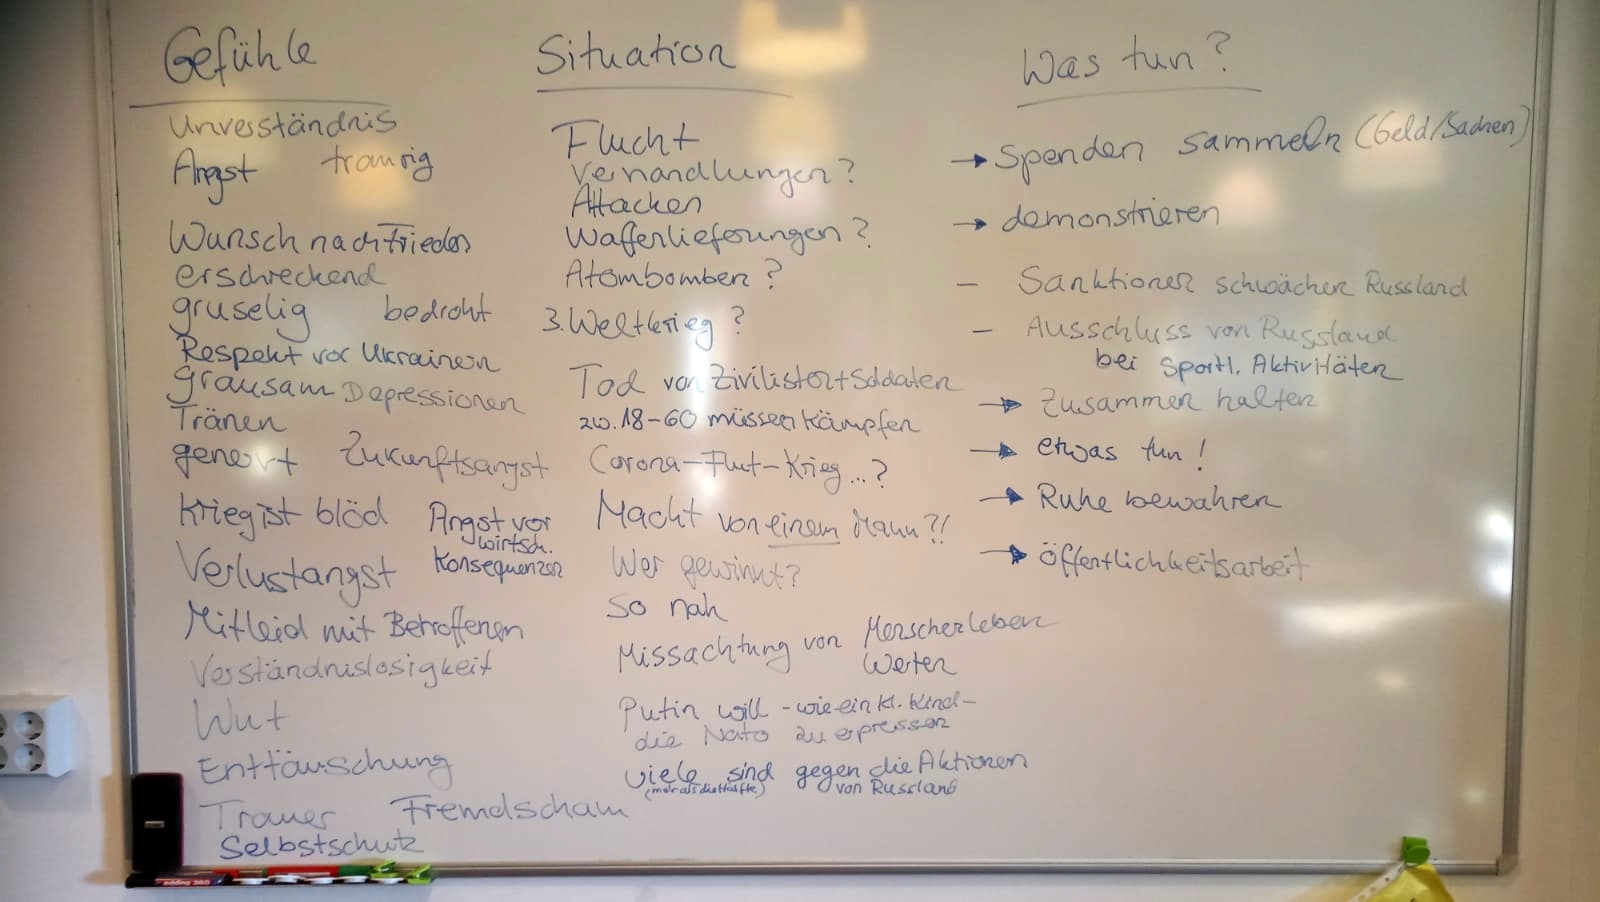 Gefühle
Unverständnis
Angst traurig
Wunsch nach Frieden
erschreckend
gruselig bedroht
Respekt vor Ukrainern
grausam Depressionen
Tränen
genervt Zukunftsangst
Krieg ist blöd Angst vor
wirtsch.
Konsequenzen
Verlustangst
Mitleid mit Betroffenen
Verständnislosigkeit
Wut
Enttäuschung
Trauer Fremdscham
Selbstschutz
Situation
Flucht
Verhandlungen?
Attacken
Waffenlieferungen?
Atombomben?
3. Weltkrieg?
Tod von Zivilisten + Soldaten
zw. 18-60 müssen kämpfen
Corona-Flut-Krieg...?
Macht von einem Mann?!
Wer gewinnt?
So nah
Missachtung von Menschenleben
Werten
Putin will - wie ein kl. Kind -
die Nato zu erpressen
viele sind gegen die Aktionen
(mehr als die Hälfte) von Russland
Was tun?
→ Spenden sammeln (Geld/Sachen)
→ demonstrieren
- Sanktionen schwächen Russland
- Ausschluss von Russland
bei Sportl. Aktivitäten
→ Zusammen halten
→ etwas tun!
→ Ruhe bewahren
→ öffentlichkeitsarbeit
edding 360